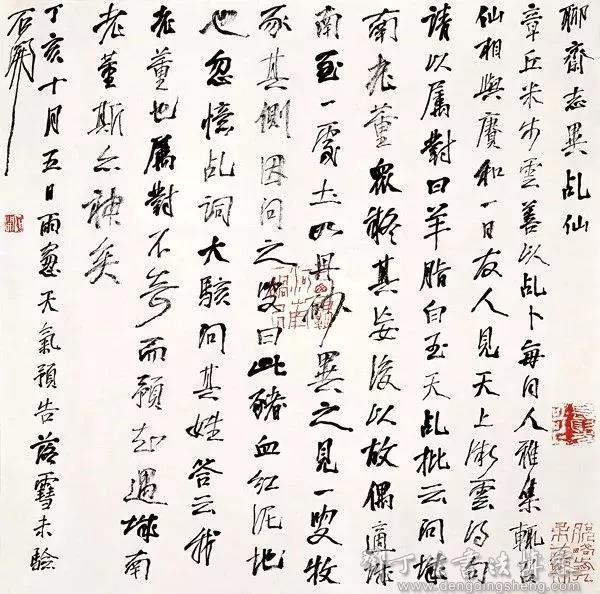 聊齋志異乩仙
章丘米步雲善以乩卜每同人雅集輒召
仙相與賡和一日友人見天上微雲得句
請以屬對曰羊脂白玉天乩批云問城
南老董眾疑其妄後以故偶適城
南至一處土如丹砂異之見一叟牧
豕其側因問之叟曰此豬血紅泥地
也忽憶乩詞大駭問其姓答云我
老董也屬對不奇而預知遇城南
老董斯亦神矣
丁亥十月五日雨窗天氣預告落雪未驗
石開
邓丁生书法博客
www.dengdingsheng.com